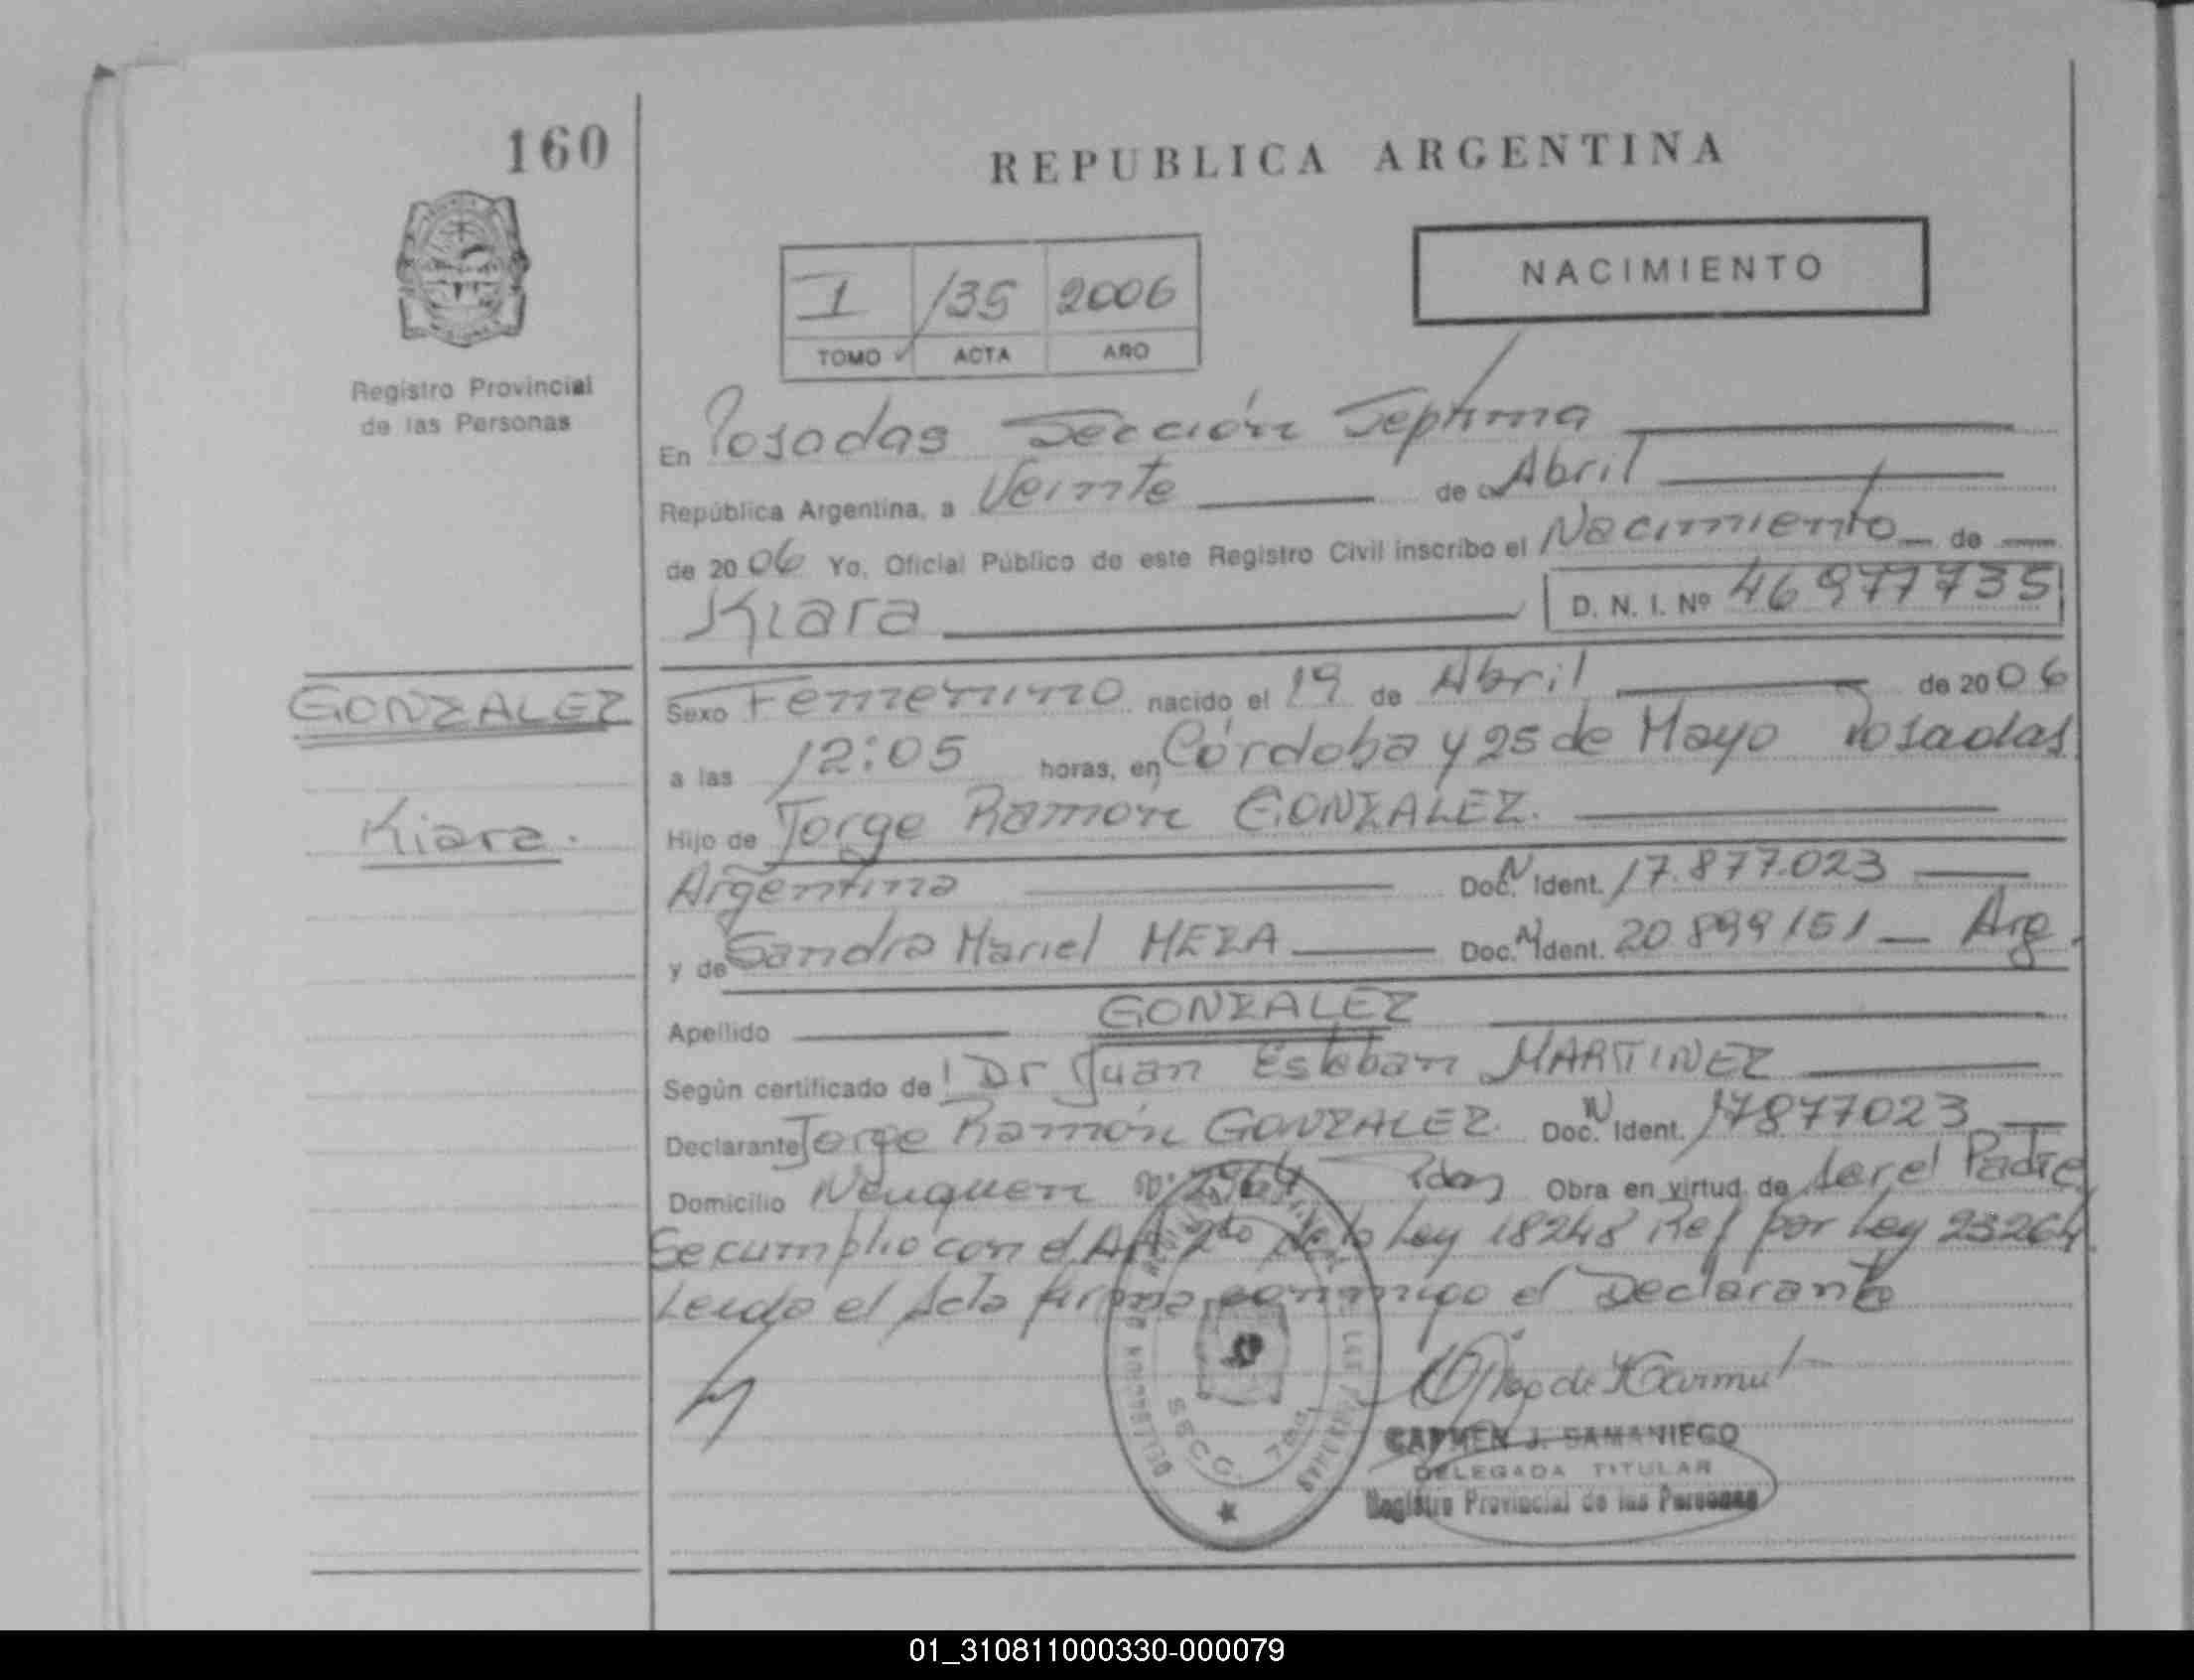 160
REPUBLICA ARGENTINA
NACIMIENTO
I /35 2006
TOMO ACTA AÑO
Registro Provincial
de las Personas
En Posadas Sección Septima
República Argentina, a Veinte de Abril
de 2006 Yo, Oficial Público de este Registro Civil inscribo el Nacimiento de
Kiara D. N. I. Nº 46977735
GONZALEZ
Kiara.
Sexo Femenino nacido el 19 de Abril de 2006
a las 12:05 horas, en Córdoba y 25 de Mayo Posadas
Hijo de Jorge Ramón GONZALEZ.
Argentina Doc. N Ident. 17.877.023
y de Sandra Mariel MEZA Doc. N Ident. 20 899 151 Arg.
Apellido GONZALEZ
Según certificado de Dr Juan Esteban MARTINEZ
Declarante Jorge Ramón GONZALEZ. Doc. N Ident. 17877023
Domicilio Neuquen Nº Pdas Obra en virtud de ser el Padre
Se cumplio con el Art 2do de la Ley 18248 Ref por Ley 23264
Leida el Acta firma conmigo el Declarante
CARMEN J. SAMANIEGO
DELEGADA TITULAR
Registro Provincial de las Personas
SECC. 7ma.
01_310811000330-000079